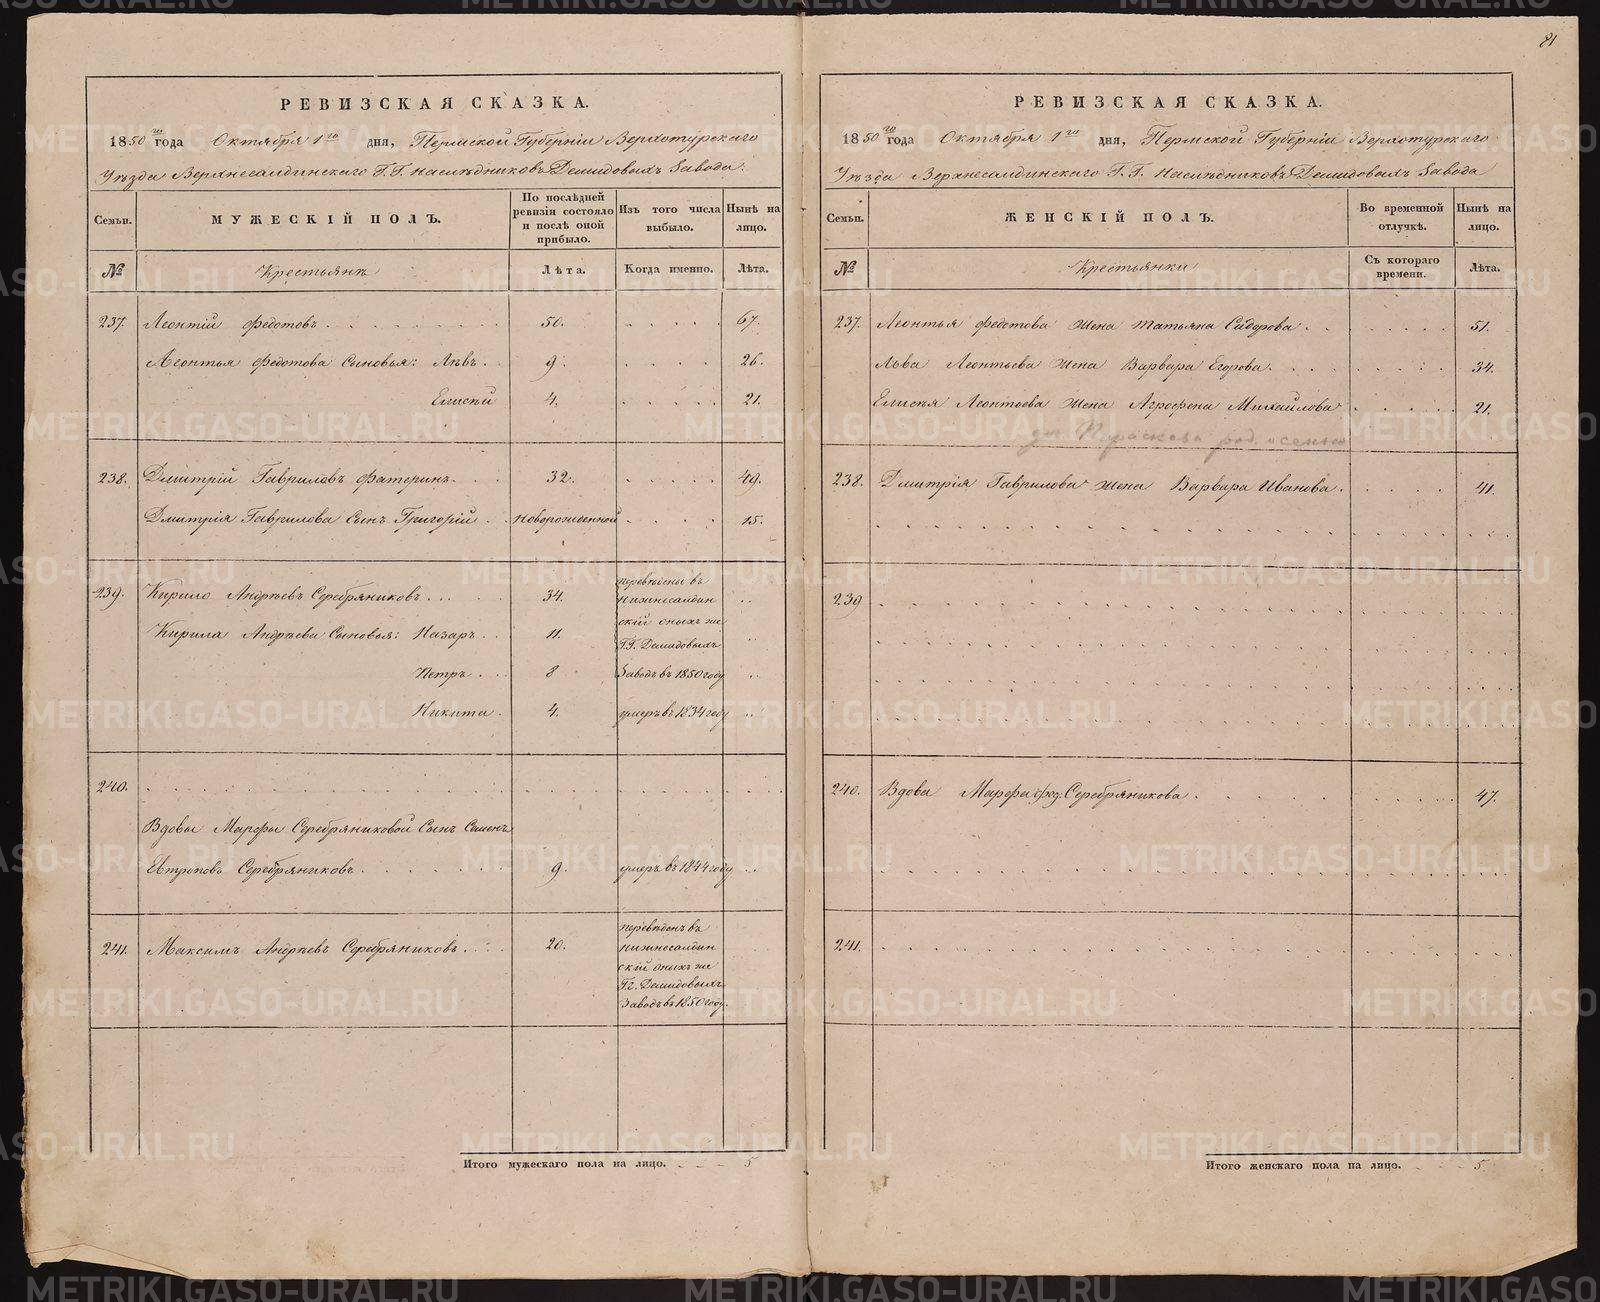 81
РЕВИЗСКАЯ СКАЗКА.
1850го года Октября 1го дня, Пермской Губерніи Верхотурскаго
Уѣзда Верхнесалдинскаго Г.Г. Наслѣдниковъ Демидовыхъ Завода.
Семьи. МУЖЕСКІЙ ПОЛЪ. По послѣдней ревизіи состояло и послѣ оной прибыло. Изъ того числа выбыло. Нынѣ на лицо.
№ Крестьянъ Лѣта. Когда именно. Лѣта.
237. Леонтій Федотовъ 50. 67.
Леонтья Федотова Сыновья: Львъ 9. 26.
Елисей 4. 21.
238. Дмитрій Гавриловъ Фатеринъ 32. 49.
Дмитрія Гаврилова Сынъ Григорій Новорожденной 15.
239. Кирило Андреевъ Серебряниковъ 34. переведены въ
нижнесалдин
скій оныхъ же
Кирила Андрѣева Сыновья: Назаръ 11. Г.Г. Демидовыхъ
Петръ 8 Заводъ въ 1850 году
Никита 4. умеръ въ 1834 году
240.
Вдовы Марфы Серебряниковой Сынъ Семенъ
Евтроповъ Серебряниковъ 9. умеръ въ 1844 году
241. Максимъ Андреевъ Серебряниковъ 20. переведенъ въ
нижнесалдин
скій оныхъ же
Гг. Демидовыхъ
Заводъ въ 1850 году.
Итого мужескаго пола на лицо. 5
РЕВИЗСКАЯ СКАЗКА.
1850го года Октября 1го дня, Пермской Губерніи Верхотурскаго
Уѣзда Верхнесалдинскаго Г.Г. Наслѣдниковъ Демидовыхъ Завода
Семьи. ЖЕНСКІЙ ПОЛЪ. Во временной отлучкѣ. Нынѣ на лицо.
№ Крестьянки Съ котораго времени. Лѣта.
237. Леонтья Федотова жена Татьяна Сидорова 51.
Льва Леонтьева жена Варвара Егорова 34.
Елисея Леонтьева жена Агрофена Михайлова 21.
дч. Параскева род. осенью
238. Дмитрія Гаврилова жена Варвара Иванова 41.
239
240. Вдова Марфа Серебряникова 47.
241.
Итого женскаго пола на лицо. 5.
METRIKI.GASO-URAL.RU